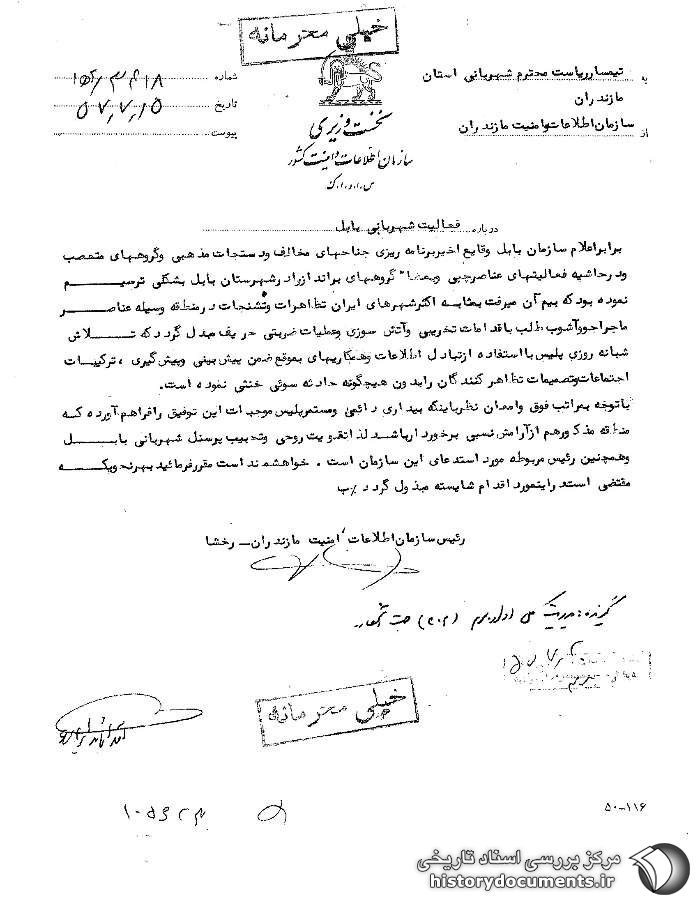 خیلی محرمانه
به تیمسار ریاست محترم شهربانی استان
مازندران
از سازمان اطلاعات و امنیت مازندران
نخست وزیری
سازمان اطلاعات و امنیت کشور
س.ا.و.ا.ک
شماره
تاریخ ۵۷٫۷٫۱۵
پیوست
درباره فعالیت شهربانی بابل
برابر اعلام سازمان بابل وقایع اخیر برنامه ریزی جناحهای مخالف و دستجات مذهبی و گروههای متعصب
و در حاشیه فعالیتهای عناصر چپی و بعضا" گروههای برانداز را در شهرستان بابل بشکلی ترسیم
نموده بود که بیم آن میرفت بمثابه اکثر شهرهای ایران تظاهرات و تشنجات در منطقه وسیله عناصر
ماجراجو و آشوب طلب با قدامات تخریبی و آتش سوزی و عملیات ضربتی حریف مبدل گردد که تلاش
شبانه روزی پلیس با استفاده از تبادل اطلاعات و همکاریهای بموقع ضمن پیش بینی و پیش گیری ، ترکیبات
اجتماعات و تصمیمات تظاهر کنندگان را بدون هیچگونه حادثه سوئی خنثی نموده است.
با توجه بمراتب فوق و امعان نظر باینکه بیداری دائمی و مستمر پلیس موجبات این توفیق را فراهم آورده که
منطقه مذکور هم از آرامش نسبی برخوردار باشد لذا تقویت روحی و تحبیب پرسنل شهربانی بابل
و همچنین رئیس مربوطه مورد استدعای این سازمان است . خواهشمند است مقرر فرمائید بهر نحویکه
مقتضی است در اینمورد اقدام شایسته مبذول گردد %ب
رئیس سازمان اطلاعات و امنیت مازندران – رخشا
گیرنده : مدیریت کل اداره سوم (۳۰۲) جهت
خیلی محرمانه
۵۰-۱۱۶
مرکز بررسی اسناد تاریخی
historydocuments.ir